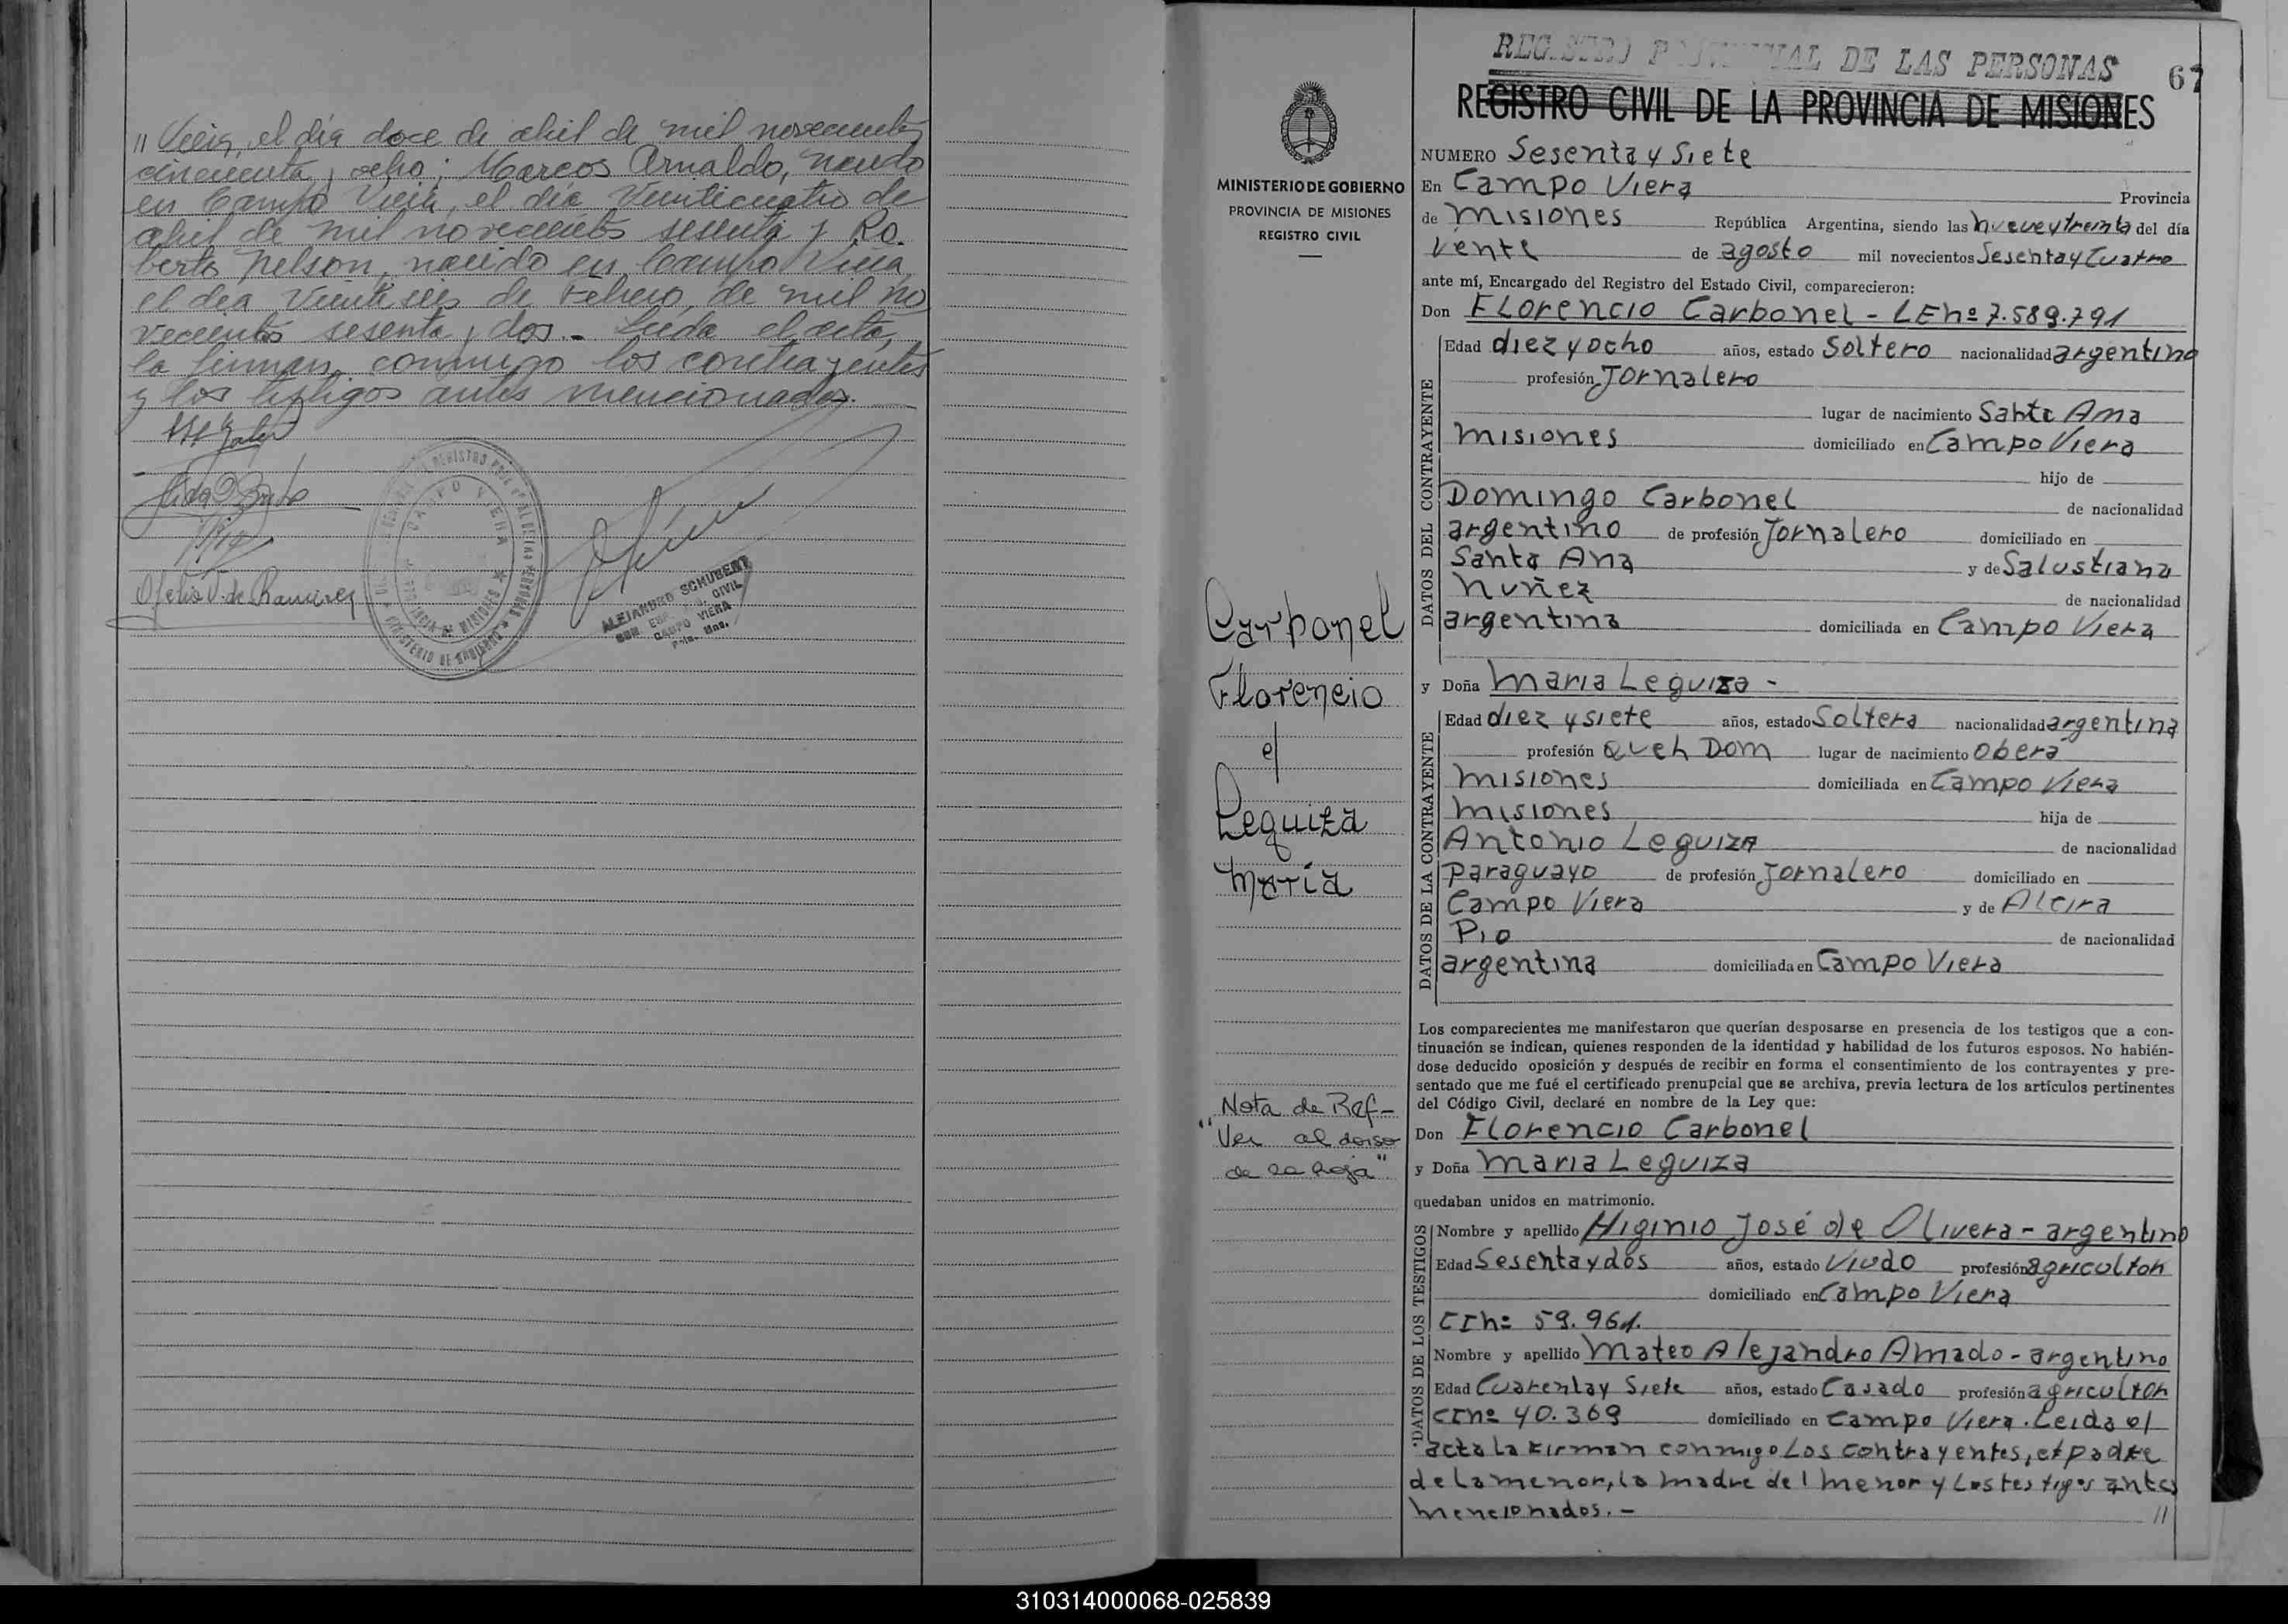 " Viera, el día doce de abril de mil novecientos
cincuenta y ocho; Marcos Arnaldo, nacido
en Campo Viera, el día veinticuatro de
abril de mil novecientos sesenta y Ro-
berto Nelson, nacido en Campo Viera,
el día veintiseis de Febrero, de mil no
vecientos sesenta y dos.- Leída el acta,
la firman conmigo los contrayentes
y los testigos antes mencionados.
Ofelia V. de Ramirez
CAMPO VIERA
PROVINCIA DE MISIONES
MINISTERIO DE GOBIERNO
ALEJANDRO SCHUBERT
CIVIL
CAMPO VIERA
Pcia. Mnes.
REGISTRO PROVINCIAL DE LAS PERSONAS
67
REGISTRO CIVIL DE LA PROVINCIA DE MISIONES
MINISTERIO DE GOBIERNO
PROVINCIA DE MISIONES
REGISTRO CIVIL
NUMERO Sesenta y Siete
En Campo Viera Provincia
de Misiones República Argentina, siendo las nueve y treinta del día
veinte de agosto mil novecientos Sesenta y Cuatro
ante mí, Encargado del Registro del Estado Civil, comparecieron:
Don Florencio Carbonel - LE nº 7.589.791
DATOS DEL CONTRAYENTE
Edad diez y ocho años, estado Soltero nacionalidad argentino
profesión Jornalero
lugar de nacimiento Santa Ana
Misiones domiciliado en Campo Viera
hijo de
Domingo Carbonel de nacionalidad
argentino de profesión Jornalero domiciliado en
Santa Ana y de Salustiana
Nuñez de nacionalidad
argentina domiciliada en Campo Viera
Carbonel
Florencio
e/
Leguiza
María
y Doña Maria Leguiza -
DATOS DE LA CONTRAYENTE
Edad diez y siete años, estado Soltera nacionalidad argentina
profesión Queh Dom lugar de nacimiento Oberá
Misiones domiciliada en Campo Viera
Misiones hija de
Antonio Leguiza de nacionalidad
paraguayo de profesión Jornalero domiciliado en
Campo Viera y de Alcira
Pio de nacionalidad
argentina domiciliada en Campo Viera
Los comparecientes me manifestaron que querían desposarse en presencia de los testigos que a con-
tinuación se indican, quienes responden de la identidad y habilidad de los futuros esposos. No habién-
dose deducido oposición y después de recibir en forma el consentimiento de los contrayentes y pre-
sentado que me fué el certificado prenupcial que se archiva, previa lectura de los artículos pertinentes
del Código Civil, declaré en nombre de la Ley que:
Nota de Ref-
"Ver al dorso
de la hoja"
Don Florencio Carbonel
y Doña Maria Leguiza
quedaban unidos en matrimonio.
DATOS DE LOS TESTIGOS
Nombre y apellido Higinio José de Olivera - argentino
Edad Sesenta y dos años, estado Viudo profesión agricultor
domiciliado en Campo Viera
CI nº 59.961.
Nombre y apellido Mateo Alejandro Amado - argentino
Edad Cuarenta y Siete años, estado Casado profesión agricultor
CI nº 40.369 domiciliado en Campo Viera. Leida el
acta la firman conmigo los contrayentes, el padre
de la menor, la madre del menor y los testigos antes
mencionados. - //
310314000068-025839